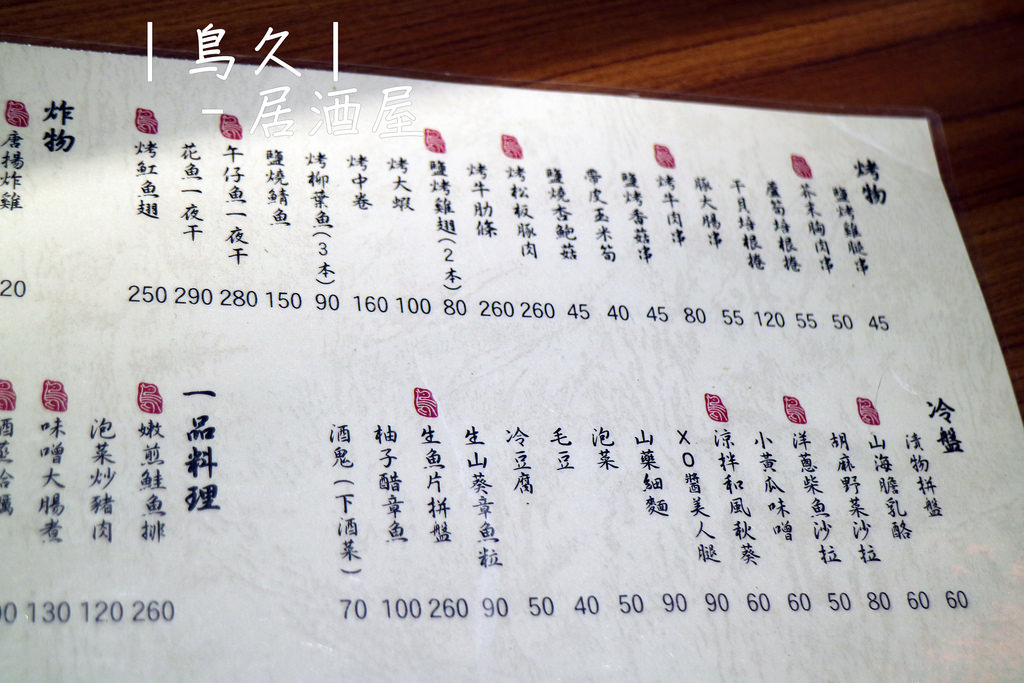 |鳥久|
-居酒屋
烤物
鹽烤雞腿串 45
芥末胸肉串 50
蘆筍培根捲 55
干貝培根捲 120
豚大腸串 55
烤牛肉串 80
鹽烤香菇串 45
帶皮玉米筍 40
鹽燒杏鮑菇 45
烤松板豚肉 260
烤牛肋條 260
鹽烤雞翅(2本) 80
烤大蝦 100
烤中卷 160
烤柳葉魚(3本) 90
鹽燒鯖魚 150
午仔魚一夜干 280
花魚一夜干 290
烤魟魚翅 250
炸物
唐揚炸雞 20
冷盤
漬物拼盤 60
山海膽乳酪 60
胡麻野菜沙拉 80
洋蔥柴魚沙拉 50
小黃瓜味噌 60
涼拌和風秋葵 60
XO醬美人腿 90
山藥細麵 90
泡菜 50
毛豆 40
冷豆腐 50
生山葵章魚粒 90
生魚片拼盤 260
柚子醋章魚 100
酒鬼(下酒菜) 70
一品料理
嫩煎鮭魚排 260
泡菜炒豬肉 120
味噌大腸煮 130
酒蒸蛤蠣